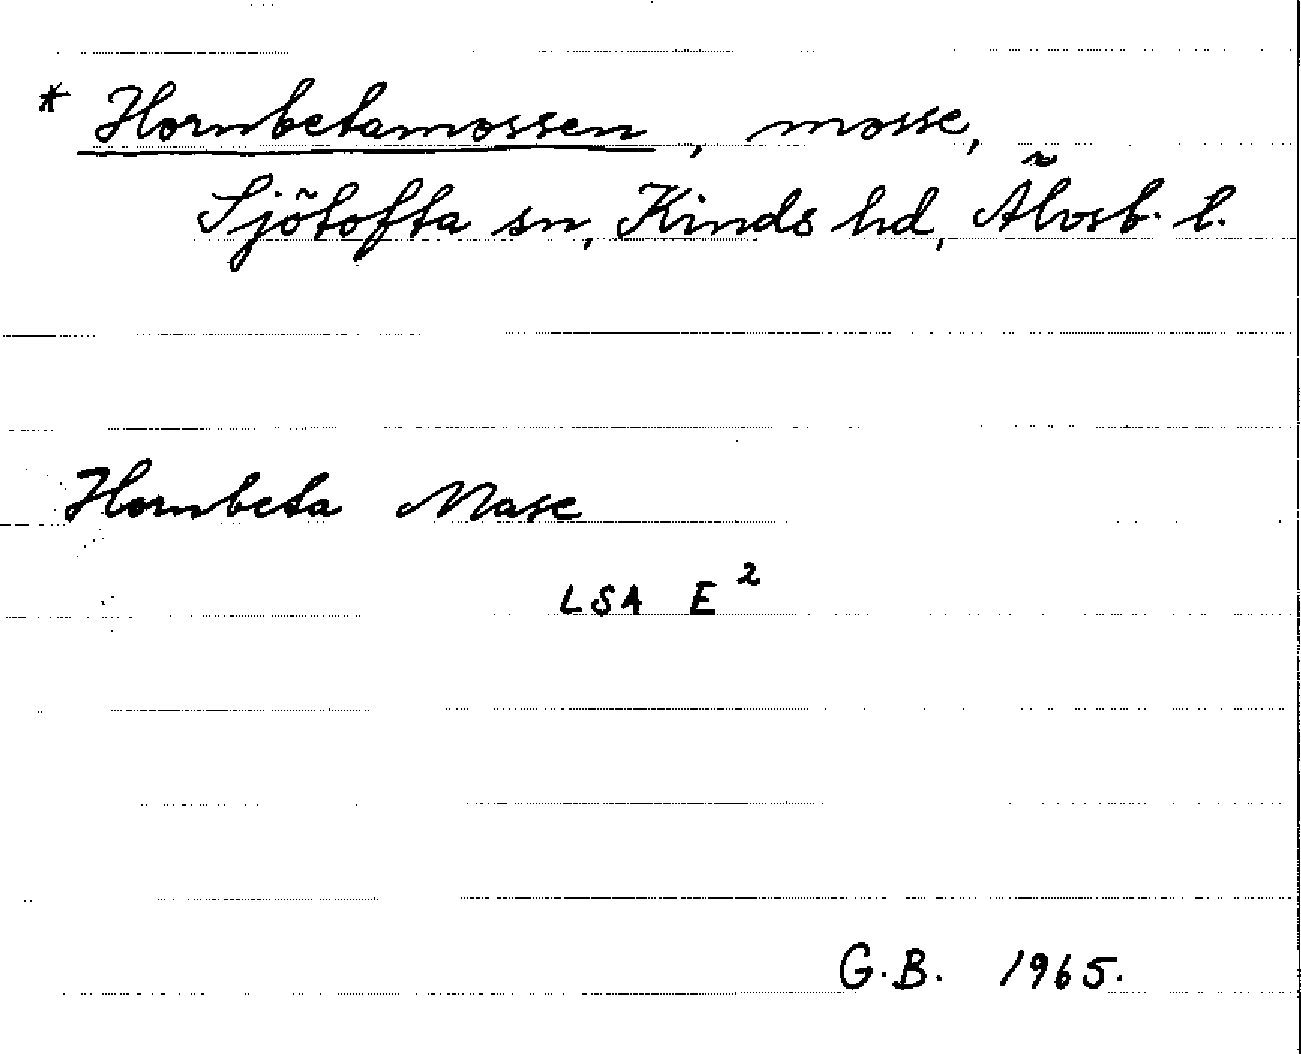 * Hornbetamossen, mosse,
Sjötofta sn, Kinds hd, Älvsb. l.
Hornbeta Mase
LSA E²
G.B. 1965.